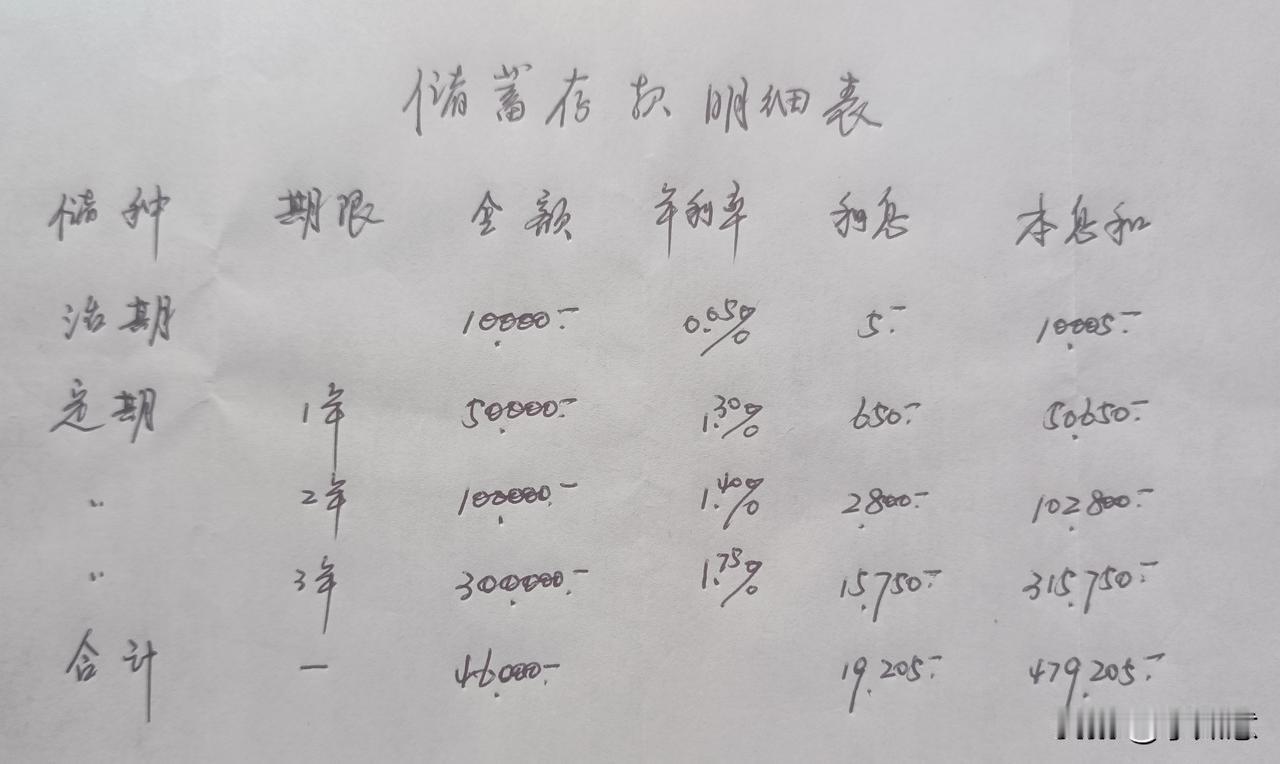 储蓄存款明细表
储种 期限 金额 年利率 利息 本息和
活期 10.000.- 0.05% 5.- 10.005.-
定期 1年 50.000.- 1.30% 650.- 50.650.-
〃 2年 100.000.- 1.40% 2.800.- 102.800.-
〃 3年 300.000.- 1.75% 15.750.- 315.750.-
合计 — 46.000.- 19.205.- 479.205.-